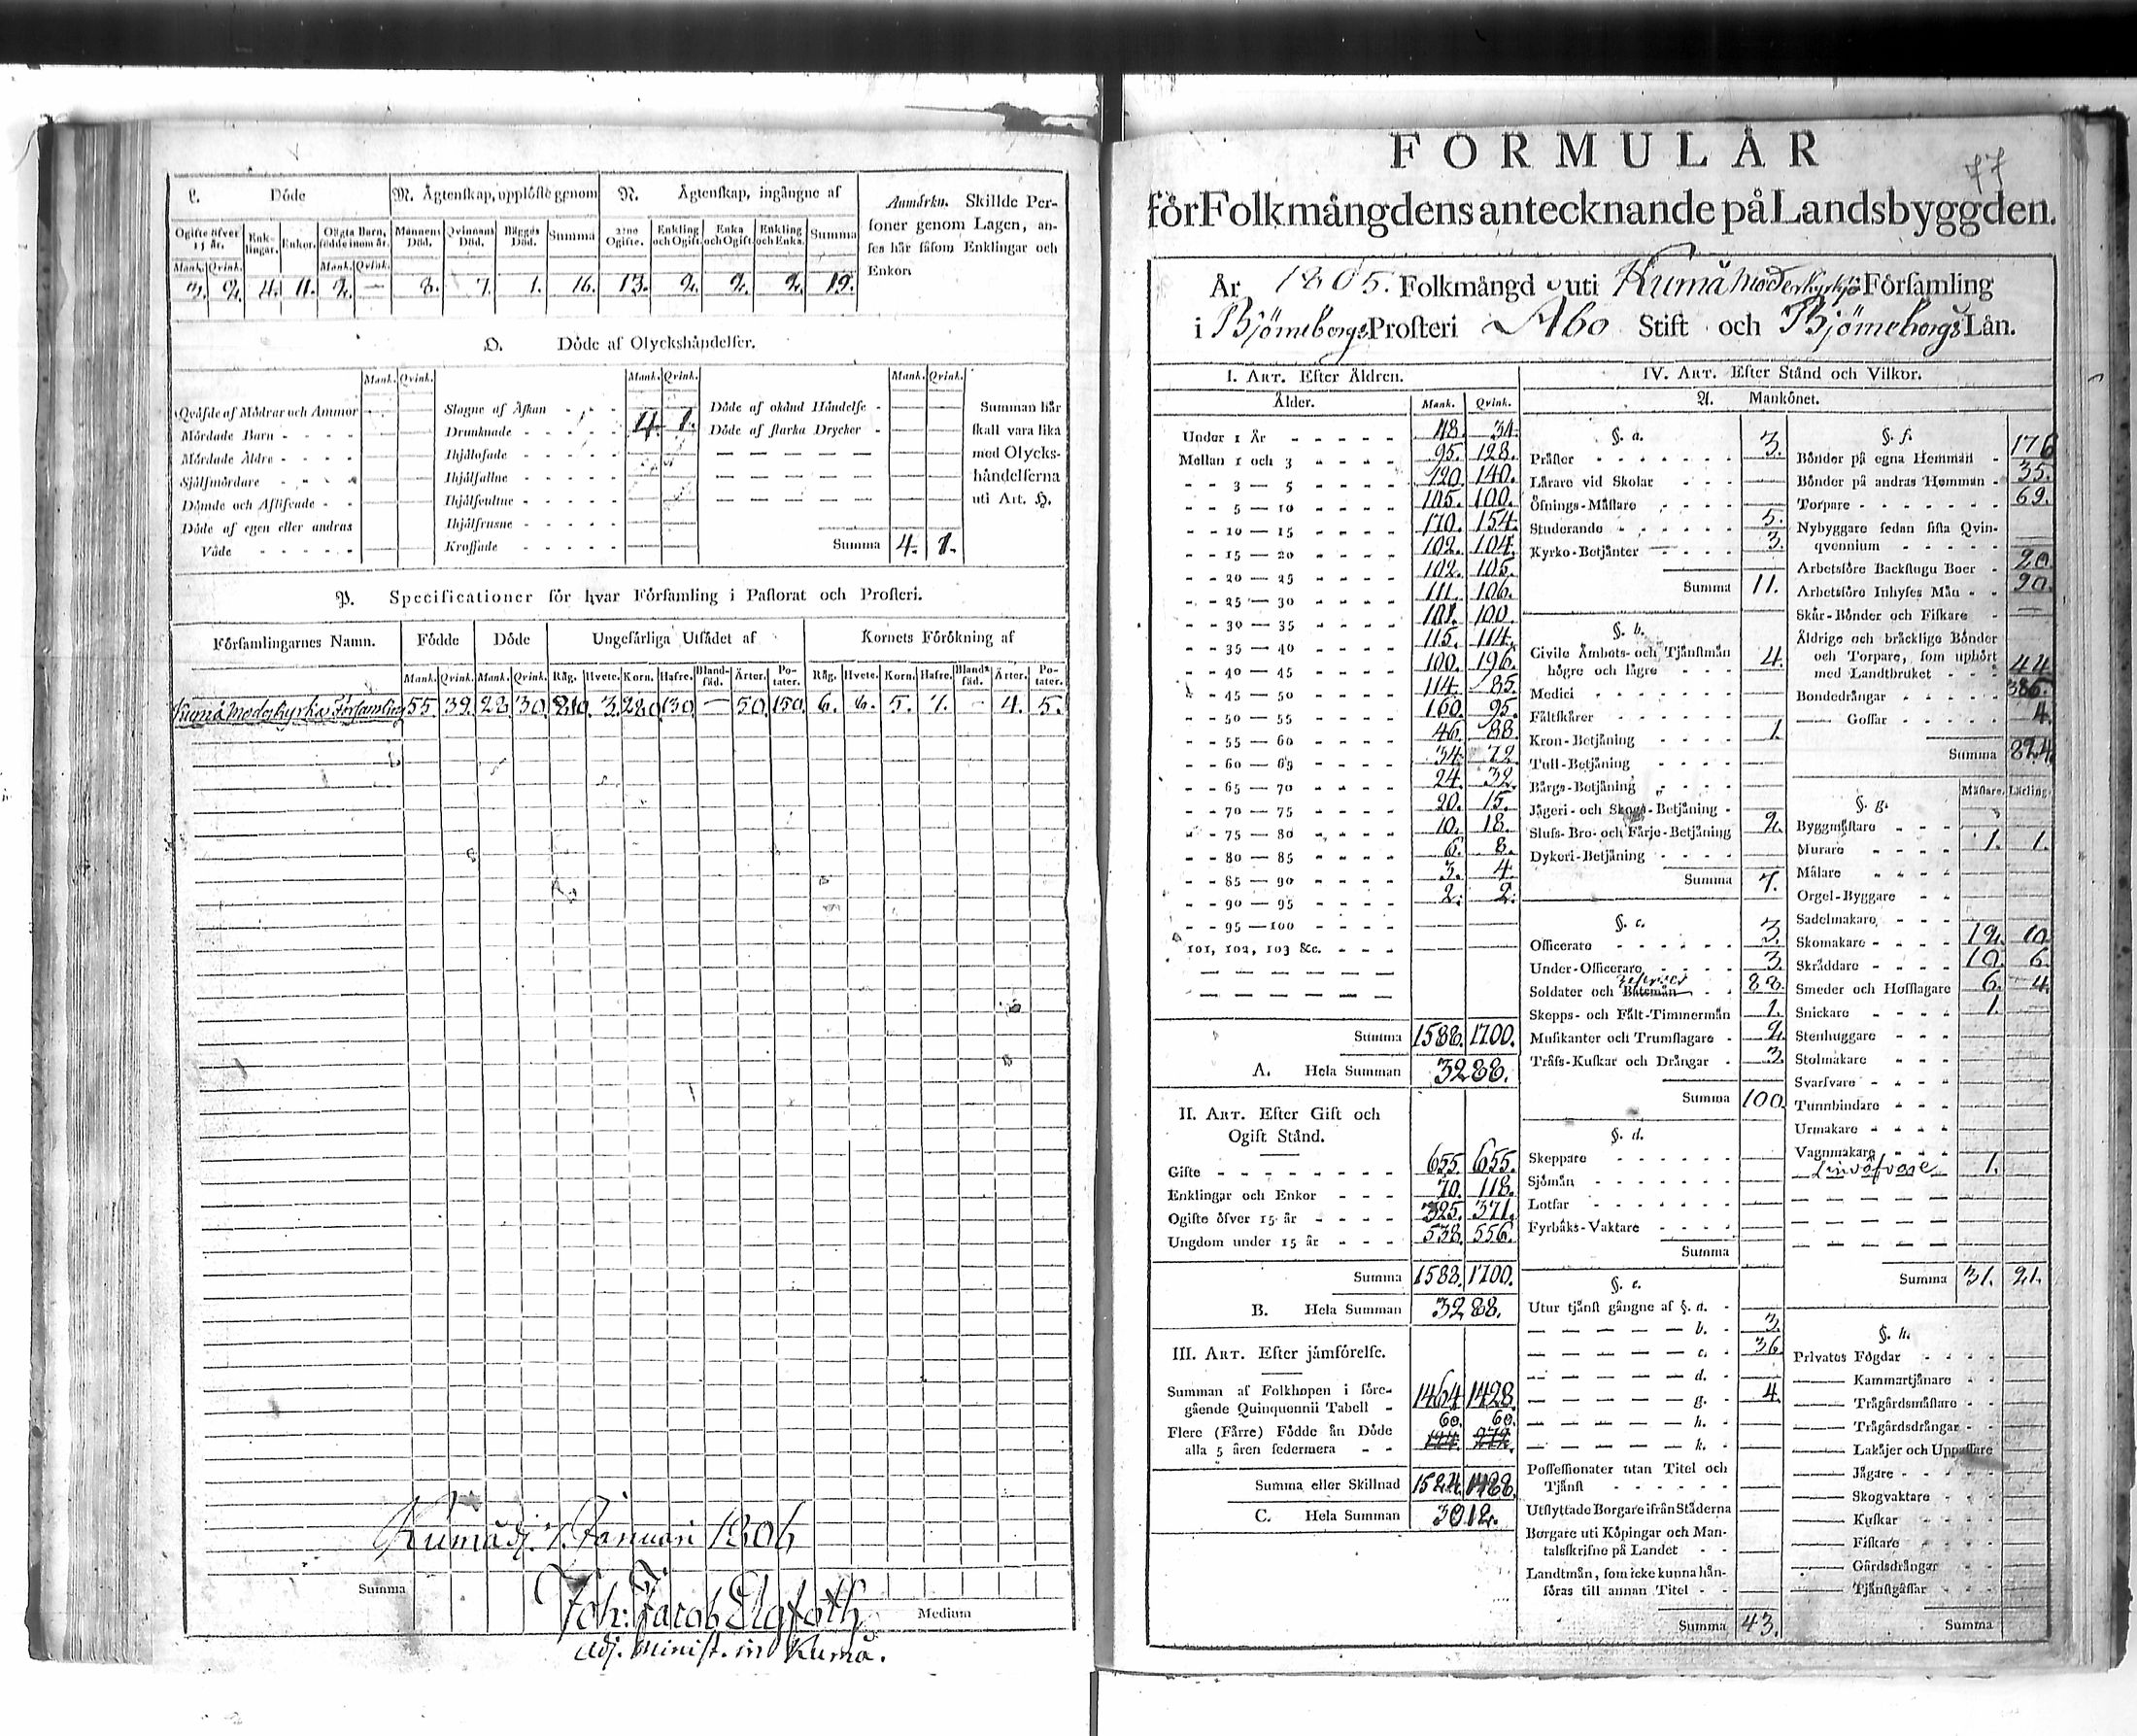 L. Döde
M. Ägtenskap, upplöste genom
N. Ägtenskap, ingångne af
Anmärkn. Skillde Personer genom Lagen, anses här såsom Enklingar och Enkor.
Ogifte öfver 15 år. Enklingar. Enkor. Oägta Barn, födde inom år. Männens Död. Qvinnans Död. Bägges Död. Summa 2:ne Ogifte. Enkling och Ogift. Enka och Ogift. Enkling och Enka. Summa
Mank. Qvink. Mank. Qvink.
3. 2. 4. 11. 2. — 8. 7. 1. 16. 13. 2. 2. 2. 19.
O. Döde af Olyckshändelser.
Mank. Qvink. Mank. Qvink. Mank. Qvink.
Qväfde af Mödrar och Ammor
Mördade Barn - - - -
Mördade Äldre - - - -
Själfmördare - - - -
Dömde och Aflifvade - -
Döde af egen eller andras
Våde - - - - -
Slagne af Åskan - - -
Drunknade - - - - - 4. 1.
Ihjälosade - - - - -
Ihjälfallne - - - - -
Ihjälsvultne - - - - -
Ihjälfrusne - - - - -
Krossade - - - - -
Döde af okänd Händelse -
Döde af starka Drycker -
Summa 4. 1.
Summan här
skall vara lika
med Olycks-
händelserna
uti Art. H.
P. Specificationer för hvar Församling i Pastorat och Prosteri.
Församlingarnes Namn. Födde Döde Ungefärliga Utsädet af Kornets Förökning af
Mank. Qvink. Mank. Qvink. Råg. Hvete. Korn. Hafre. Blandsäd. Ärter. Potater. Råg. Hvete. Korn. Hafre. Blandsäd. Ärter. Potater.
Kumå Moderkyrko Församling 55. 39. 28. 30. 210. 3. 280. 130. — 50. 150. 6. 6. 5. 7. — 4. 5.
Kumå d. 7. Januari 1806
Summa
Joh: Jacob
Medium
Adj. Minist. in Kumå.
77
FORMULÄR
för Folkmängdens antecknande på Landsbyggden.
År 1805. Folkmängd uti Kumå Moderkyrkjo Församling
i Björneborgs Prosteri Åbo Stift och Björneborgs Län.
I. ART. Efter Åldren.
Ålder. Mank. Qvink.
Under 1 År - - - - - 48. 34.
Mellan 1 och 3 - - - - 95. 128.
- - 3 — 5 - - - - 120. 140.
- - 5 — 10 - - - - 105. 100.
- - 10 — 15 - - - - 170. 154.
- - 15 — 20 - - - - 102. 104.
- - 20 — 25 - - - - 102. 105.
- - 25 — 30 - - - - 111. 106.
- - 30 — 35 - - - - 101. 100.
- - 35 — 40 - - - - 115. 114.
- - 40 — 45 - - - - 100. 196.
- - 45 — 50 - - - - 114. 85.
- - 50 — 55 - - - - 160. 95.
- - 55 — 60 - - - - 46. 88.
- - 60 — 65 - - - - 34. 72.
- - 65 — 70 - - - - 24. 32.
- - 70 — 75 - - - - 20. 15.
- - 75 — 80 - - - - 10. 18.
- - 80 — 85 - - - - 6. 8.
- - 85 — 90 - - - - 3. 4.
- - 90 — 95 - - - - 2. 2.
- - 95 — 100 - - - -
101, 102, 103 &c. - - -
Summa 1588. 1700.
A. Hela Summan 3288.
II. ART. Efter Gift och
Ogift Stånd.
Gifte - - - - - - - - 655. 655.
Enklingar och Enkor - - - 70. 118.
Ogifte öfver 15 år - - - - 325. 371.
Ungdom under 15 år - - - 538. 556.
Summa 1588. 1700.
B. Hela Summan 3288.
III. ART. Efter jämförelse.
Summan af Folkhopen i före-
gående Quinquennii Tabell - 1464 1428
60. 60.
Flere (Färre) Födde än Döde
alla 5 åren sedermera - -
Summa eller Skillnad 1524. 1488.
C. Hela Summan 3012.
IV. ART. Efter Stånd och Vilkor.
A. Mankönet.
§. a.
Präster - - - - - - - 3.
Lärare vid Skolar - - -
Öfnings-Mästare - - - -
Studerande - - - - - - 5.
Kyrko-Betjänter - - - - 3.
Summa 11.
§. b.
Civile Ämbets- och Tjänstmän
högre och lägre - - - - 4.
Medici - - - - - - -
Fältskärer - - - - -
Kron-Betjäning - - - - 1.
Tull-Betjäning - - - -
Bärgs-Betjäning - - - -
Jägeri- och Skogs-Betjäning -
Sluss- Bro- och Färje-Betjäning 2.
Dykeri-Betjäning - - - -
Summa 7.
§. c.
Officerare - - - - - - 3.
Under-Officerare - - - - 3.
Soldater och Båtsmän - - 88.
Skepps- och Fält-Timmermän 1.
Musikanter och Trumslagare - 2.
Träss-Kuskar och Drängar - 3.
Summa 100.
§. d.
Skeppare - - - - - -
Sjömän - - - - - - -
Lotsar - - - - - - -
Fyrbåks-Vaktare - - - -
Summa
§. e.
Utur tjänst gångne af §. a. -
— — — — — b. - 3.
— — — — — c. - 36.
— — — — — d. -
— — — — — g. - 4.
— — — — — h. -
— — — — — k. -
Possessionater utan Titel och
Tjänst - - - - - -
Utflyttade Borgare ifrån Städerna
Borgare uti Köpingar och Man-
talsskrifne på Landet - -
Landtmän, som icke kunna hän-
föras till annan Titel - -
Summa 43.
§. f.
Bönder på egna Hemman - 176
Bönder på andras Hemman - 35.
Torpare - - - - - - - 69.
Nybyggare sedan sista Qvin-
qvennium - - - - -
Arbetsföre Backstugu Boer - 20.
Arbetsföre Inhyses Män - - 20.
Skär-Bönder och Fiskare -
Äldrige och bräcklige Bönder
och Torpare, som uphört
med Landtbruket - - - 44
Bondedrängar - - - - - 386.
—— Gossar - - - - - 4.
Summa 824
§. g. Mästare. Lärling.
Byggmästare - - -
Murare - - - - 1. 1.
Målare - - - -
Orgel-Byggare - -
Sadelmakare - - -
Skomakare - - - - 12. 10.
Skräddare - - - - 10. 6.
Smeder och Hofslagare 6. 4.
Snickare - - - - 1.
Stenhuggare - - -
Stolmakare - - -
Svarfvare - - - -
Tunnbindare - - -
Urmakare - - - -
Vagnmakare - - -
Linväfvare 1.
Summa 31. 21.
§. h.
Privates Fogdar - - - -
—— Kammartjänare - -
—— Trägårdsmästare - -
—— Trägårdsdrängar - -
—— Lakäjer och Uppassare
—— Jägare - - - - -
—— Skogvaktare - - -
—— Kuskar - - - -
—— Fiskare - - - -
—— Gårdsdrängar - - -
—— Tjänstgåssar - - -
Summa